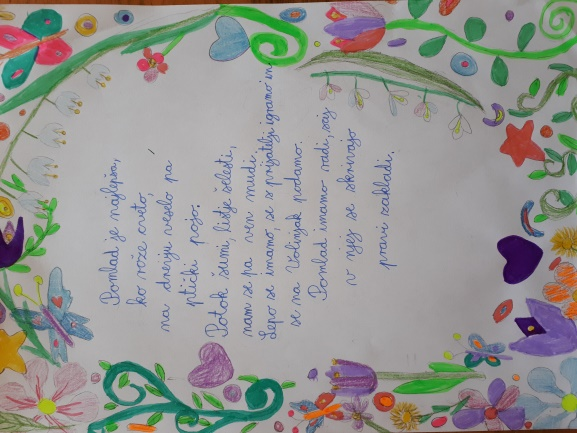 Pomlad je najlepša,
ko rože cveto,
na drevju veselo pa
ptički pojo.
Potok šumi, listje šelesti,
nam se pa ven mudi.
Lepo se imamo, se s prijatelji igramo in
se na Volinjak podamo.
Pomlad imamo radi, saj
v njej se skrivajo
pravi zakladi.